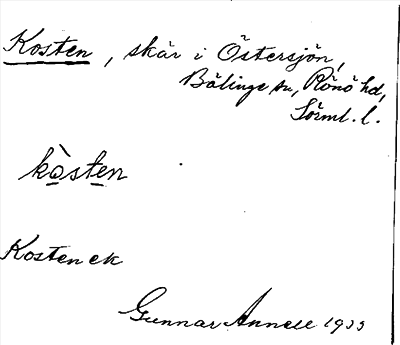 Kosten, skär i Östersjön,
Bälinge sn, Rönö hd,
Sörml. l.
kòsten
Kosten ek
Gunnar Annell 1933